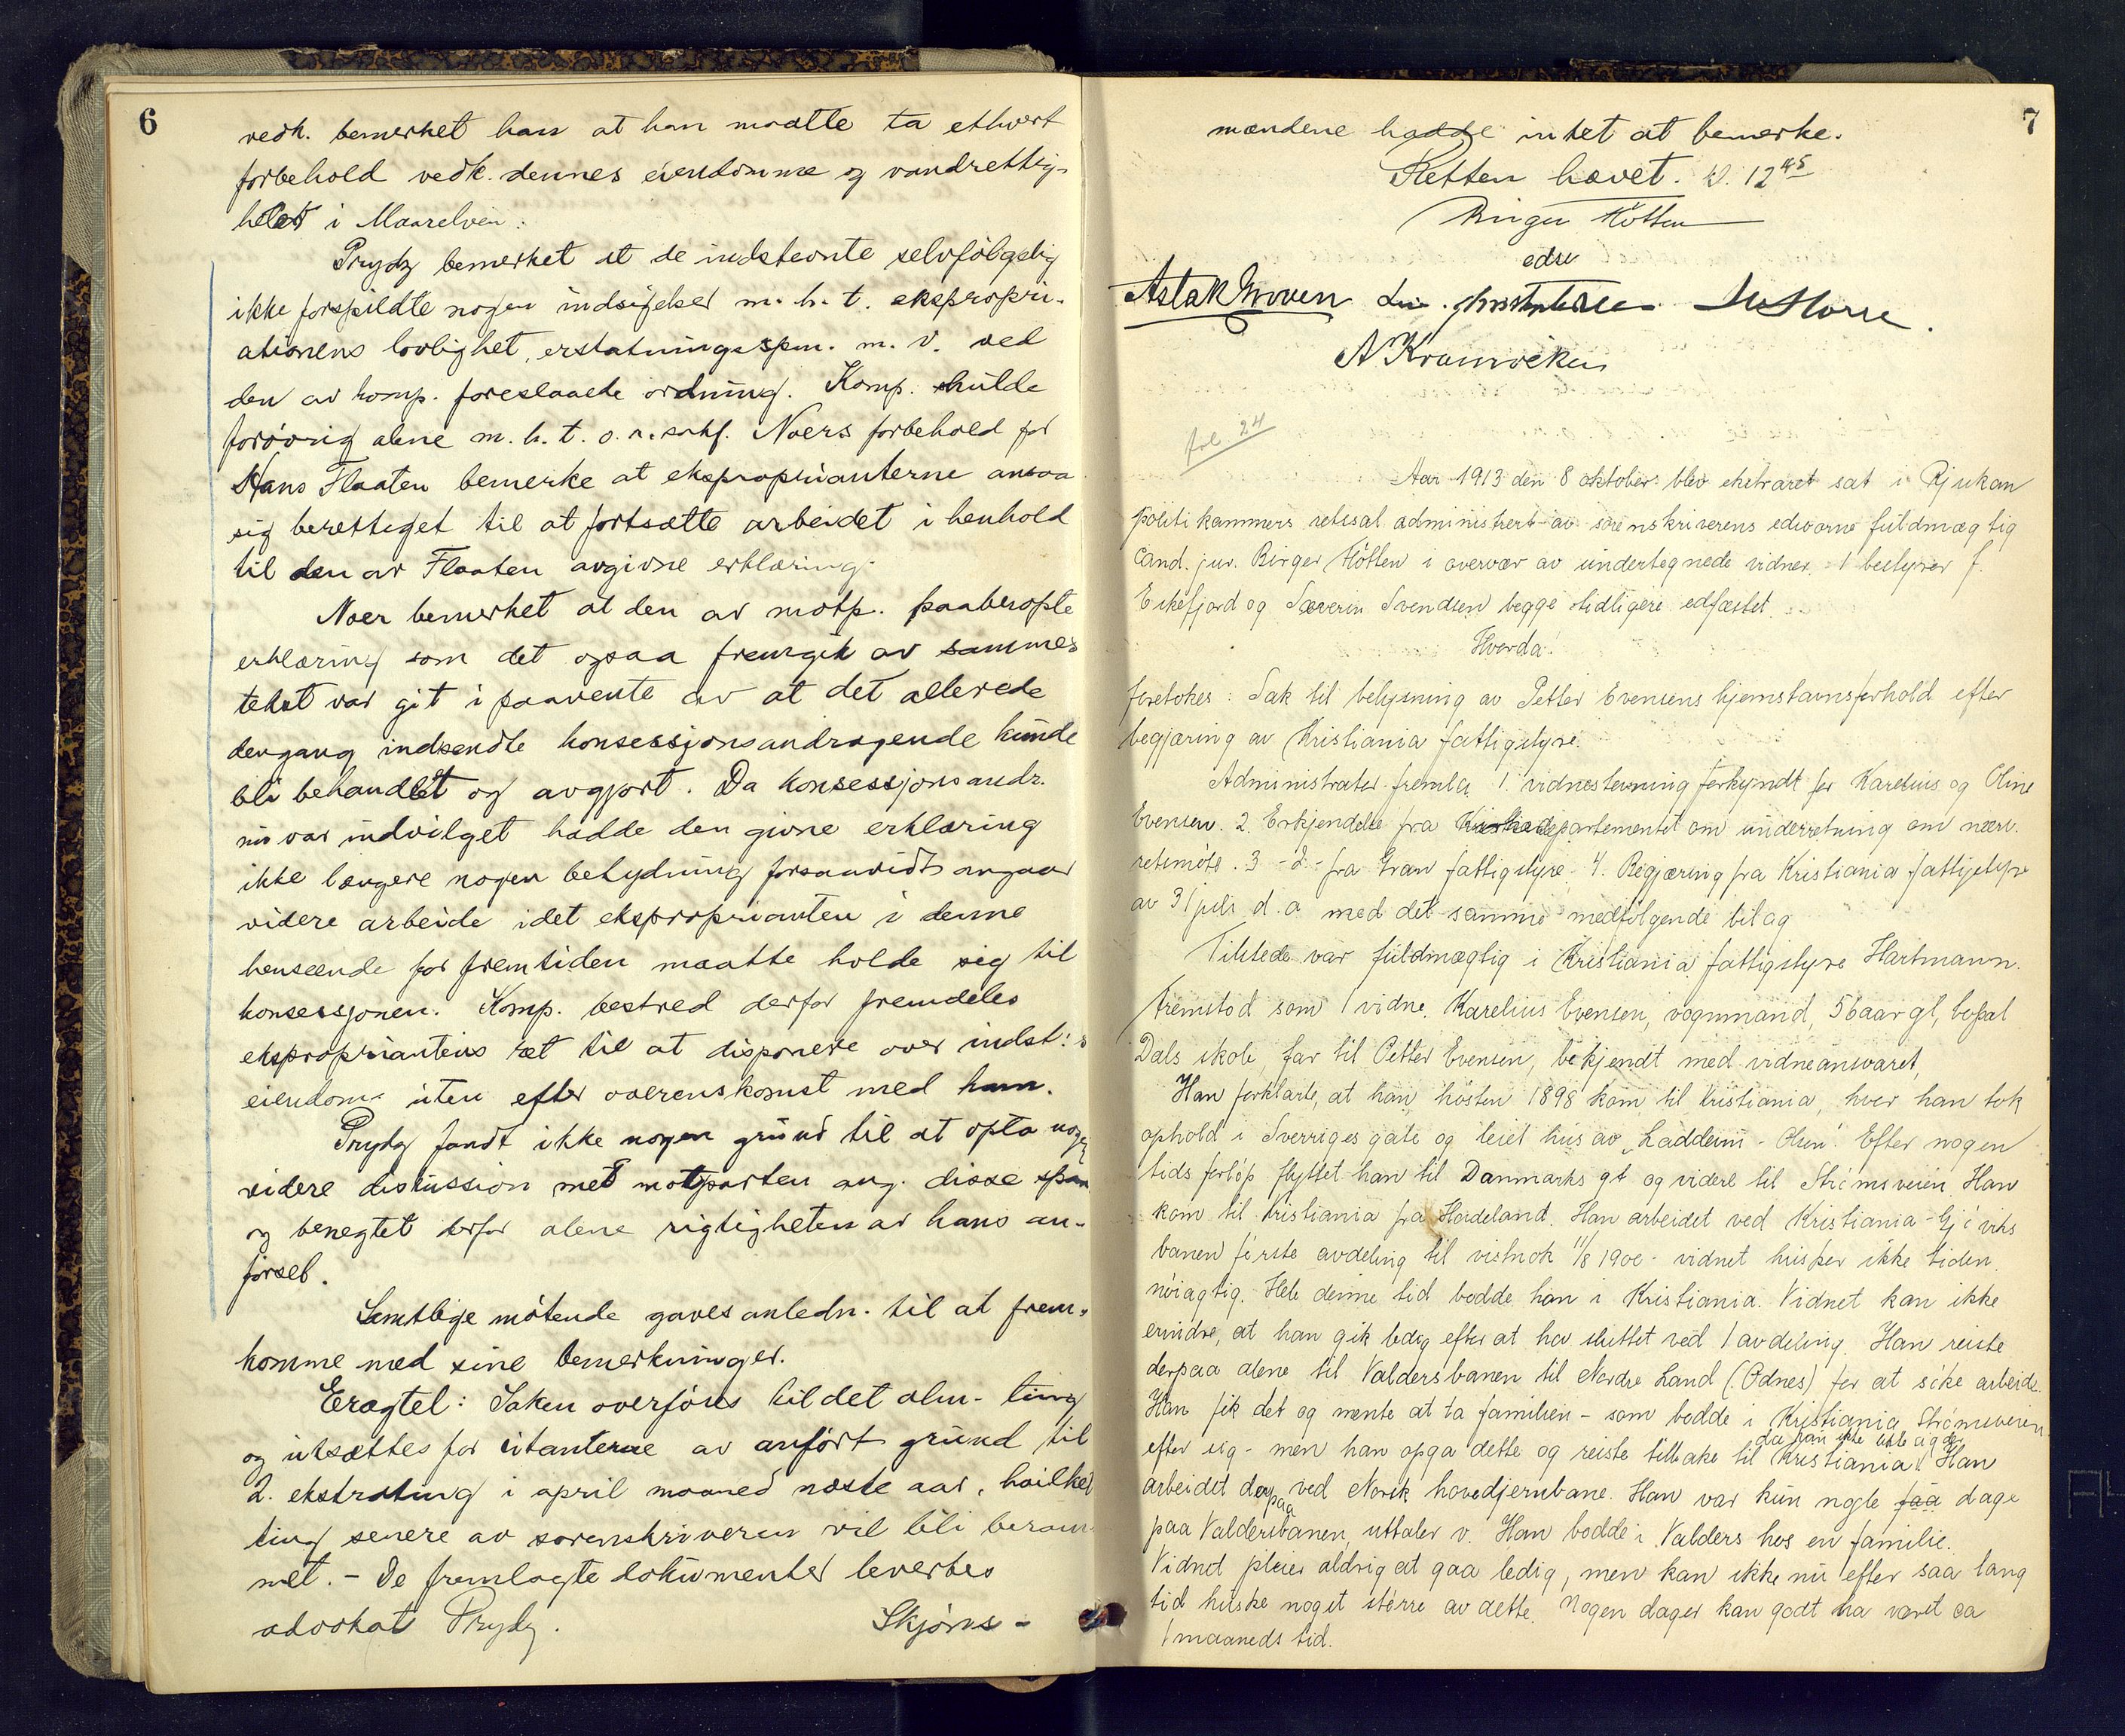 6
vedk. bemerket han at han maatte ta ethvert
forbehold vedk. dennes eiendomme og vandrettig-
heter i Maarelven.
Prydz bemerket at de indstevnte selvfølgelig
ikke forspildte nogen indsigelser m. h. t. ekspropri-
ationens lovlighet, erstatningsspm. m. v. ved
den av komp. foreslaaede ordning. Komp. skulde
forøvrig alene m. h. t. o. r. sakf. Noers forbehold for
Hans Flaaten bemerke at eksproprianterne ansaa
sig berettiget til at fortsætte arbeidet i henhold
til den av Flaaten avgivne erklæring.
Noer bemerket at den av motp. paaberopte
erklæring som det ogsaa fremgik av sammes
tekst var git i paavente av at det allerede
dengang indsendte konsessjonsandragende kunde
bli behandlet og avgjort. Da konsessjonsandr.
nu var indvilget hadde den givne erklæring
ikke længere nogen betydning forsaavidt angaar
videre arbeide idet eksproprianten i denne
henseende for fremtiden maatte holde sig til
konsessjonen. Komp. bestred derfor fremdeles
ekspropriantens ret til at disponere over indst:s
eiendom uten efter overenskomst med ham.
Prydz fandt ikke nogen grund til at opta noge
videre diskussion med motparten ang. disse spm
og benegtet derfor alene rigtigheten av hans an-
førsel.
Samtlige møtende gaves anledn. til at frem-
komme med sine bemerkninger.
Eragtet: Saken overføres til det alm. ting
og utsættes for citanterne av anført grund til
2. ekstrating i april maaned næste aar, hvilket
ting senere av sorenskriveren vil bli beram-
met. - De fremlagte dokumenter leverbes
advokat Prydz. Skjøns-
7
mændene hadde intet at bemerke.
Retten hævet. Kl. 12 45
Birger Hötten
edsv
Aslak Groven
A Kromviken
fol 24
Aar 1913 den 8 oktober blev ekstraret sat i Rjukan
politikammers retssal administrert av sorenskriverens edsvorne fuldmægtig
cand. jur. Birger Hötten i overvær av undertegnede vidner. 1 bestyrer J.
Eikefjord og Severin Svendsen begge tidligere edfæstet.
Hvorda:
foretokes: Sak til belysning av Petter Evensens hjemstavnsforhold efter
begjæring av Kristiania fattigstyre.
Administrator fremla 1. vidnestevning forkyndt for Karelius og Oline
Evensen. 2. Erkjendelse fra Kirkedepartementet om underretning om nærv.
retsmöte. 3 - d - fra Gran fattigstyre. 4. Begjæring fra Kristiania fattigstyre
av 31 juli d. a. med det samme medfölgende bilag
Tilstede var fuldmægtig i Kristiania fattigstyre Hartmann.
Fremstod som 1 vidne. Karelius Evensen, vognmand, 56 aar gl, bopæl
Dals skole, far til Petter Evensen, bekjendt med vidneansvaret,
Han forklarte, at han hösten 1898 kom til Kristiania, hvor han tok
ophold i Sverriges gate og leiet hus av "Laddeim - Olsen". Efter nogen
tids forlöp flyttet han til Danmarks gt og videre til Strömsveien. Han
kom til Kristiania fra Hadeland. Han arbeidet ved Kristiania - Gjöviks
banen förste avdeling til vistnok 11/8 1900 - vidnet husker ikke tiden
nöiagtig. Hele denne tid bodde han i Kristiania. Vidnet kan ikke
erindre, at han gik ledig efter at ha sluttet ved 1 avdeling. Han reiste
derpaa alene til Valdersbanen til Nordre Land (Odnes) for at söke arbeide.
Han fik det og mente at ta familien - som bodde i Kristiania Strömsveien
efter sig - men han opga dette og reiste tilbake til Kristiania da han ikke likte sig der. Han
arbeidet derpaa ved Norsk hovedjernbane. Han var kun nogle faa dage
paa Valdersbanen, uttaler v. Han bodde i Valders hos en familie.
Vidnet pleier aldrig at gaa ledig, men kan ikke nu efter saa lang
tid huske noget större av dette. Nogen dager kan godt ha været ca
1 maaneds tid.